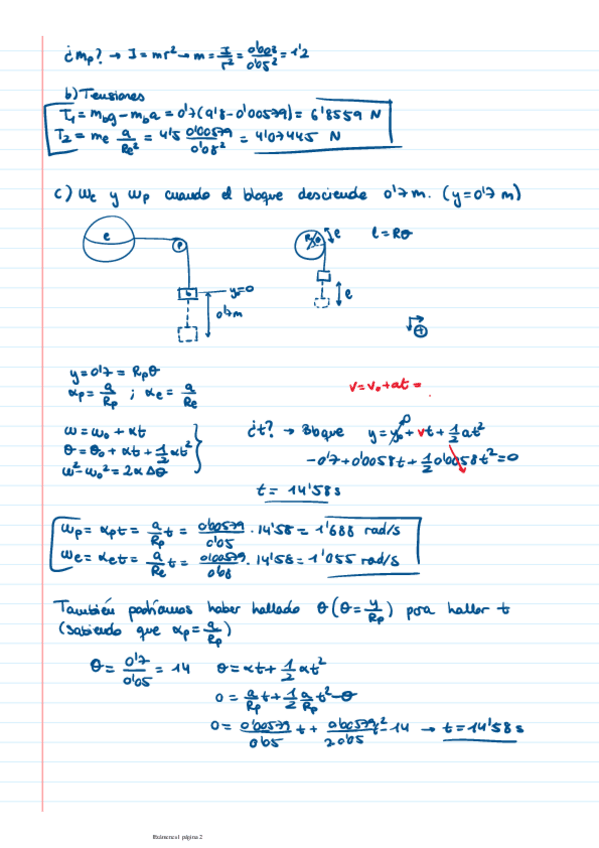 ¿mp? → I = mr² → m = I/r² = 0'003/0'05² = 1'2
b) Tensiones
T₁ = m_b g - m_b a = 0'7(9'8 - 0'00579) = 6'8559 N
T₂ = me a/Re² = 4'5 0'00579/0'08² = 4'07445 N
c) ωe y ωp cuando el bloque desciende 0'7 m. (y = 0'7 m)
e
p
R
θ
e
l = Rθ
b
y=0
0'7m
e
y = 0'7 = Rpθ
αp = a/Rp ; αe = a/Re
v = v₀ + at =
ω = ω₀ + αt
θ = θ₀ + αt + 1/2 αt²
ω² - ω₀² = 2αΔθ
¿t? → Bloque y = y₀ + vt + 1/2 at²
0
-0'7 + 0'0058t + 1/2 0'0058t² = 0
t = 14'58 s
ωp = αp t = a/Rp t = 0'00579/0'05 · 14'58 = 1'688 rad/s
ωe = αe t = a/Re t = 0'00579/0'08 · 14'58 = 1'055 rad/s
También podríamos haber hallado θ (θ = y/Rp) para hallar t
(sabiendo que αp = a/Rp)
θ = 0'7/0'05 = 14 θ = αt + 1/2 αt²
0 = a/Rp t + 1/2 a/Rp t² - θ
0 = 0'00579/0'05 t + 0'00579t²/2 0'05 - 14 → t = 14'58 s
Examenes1 página 2